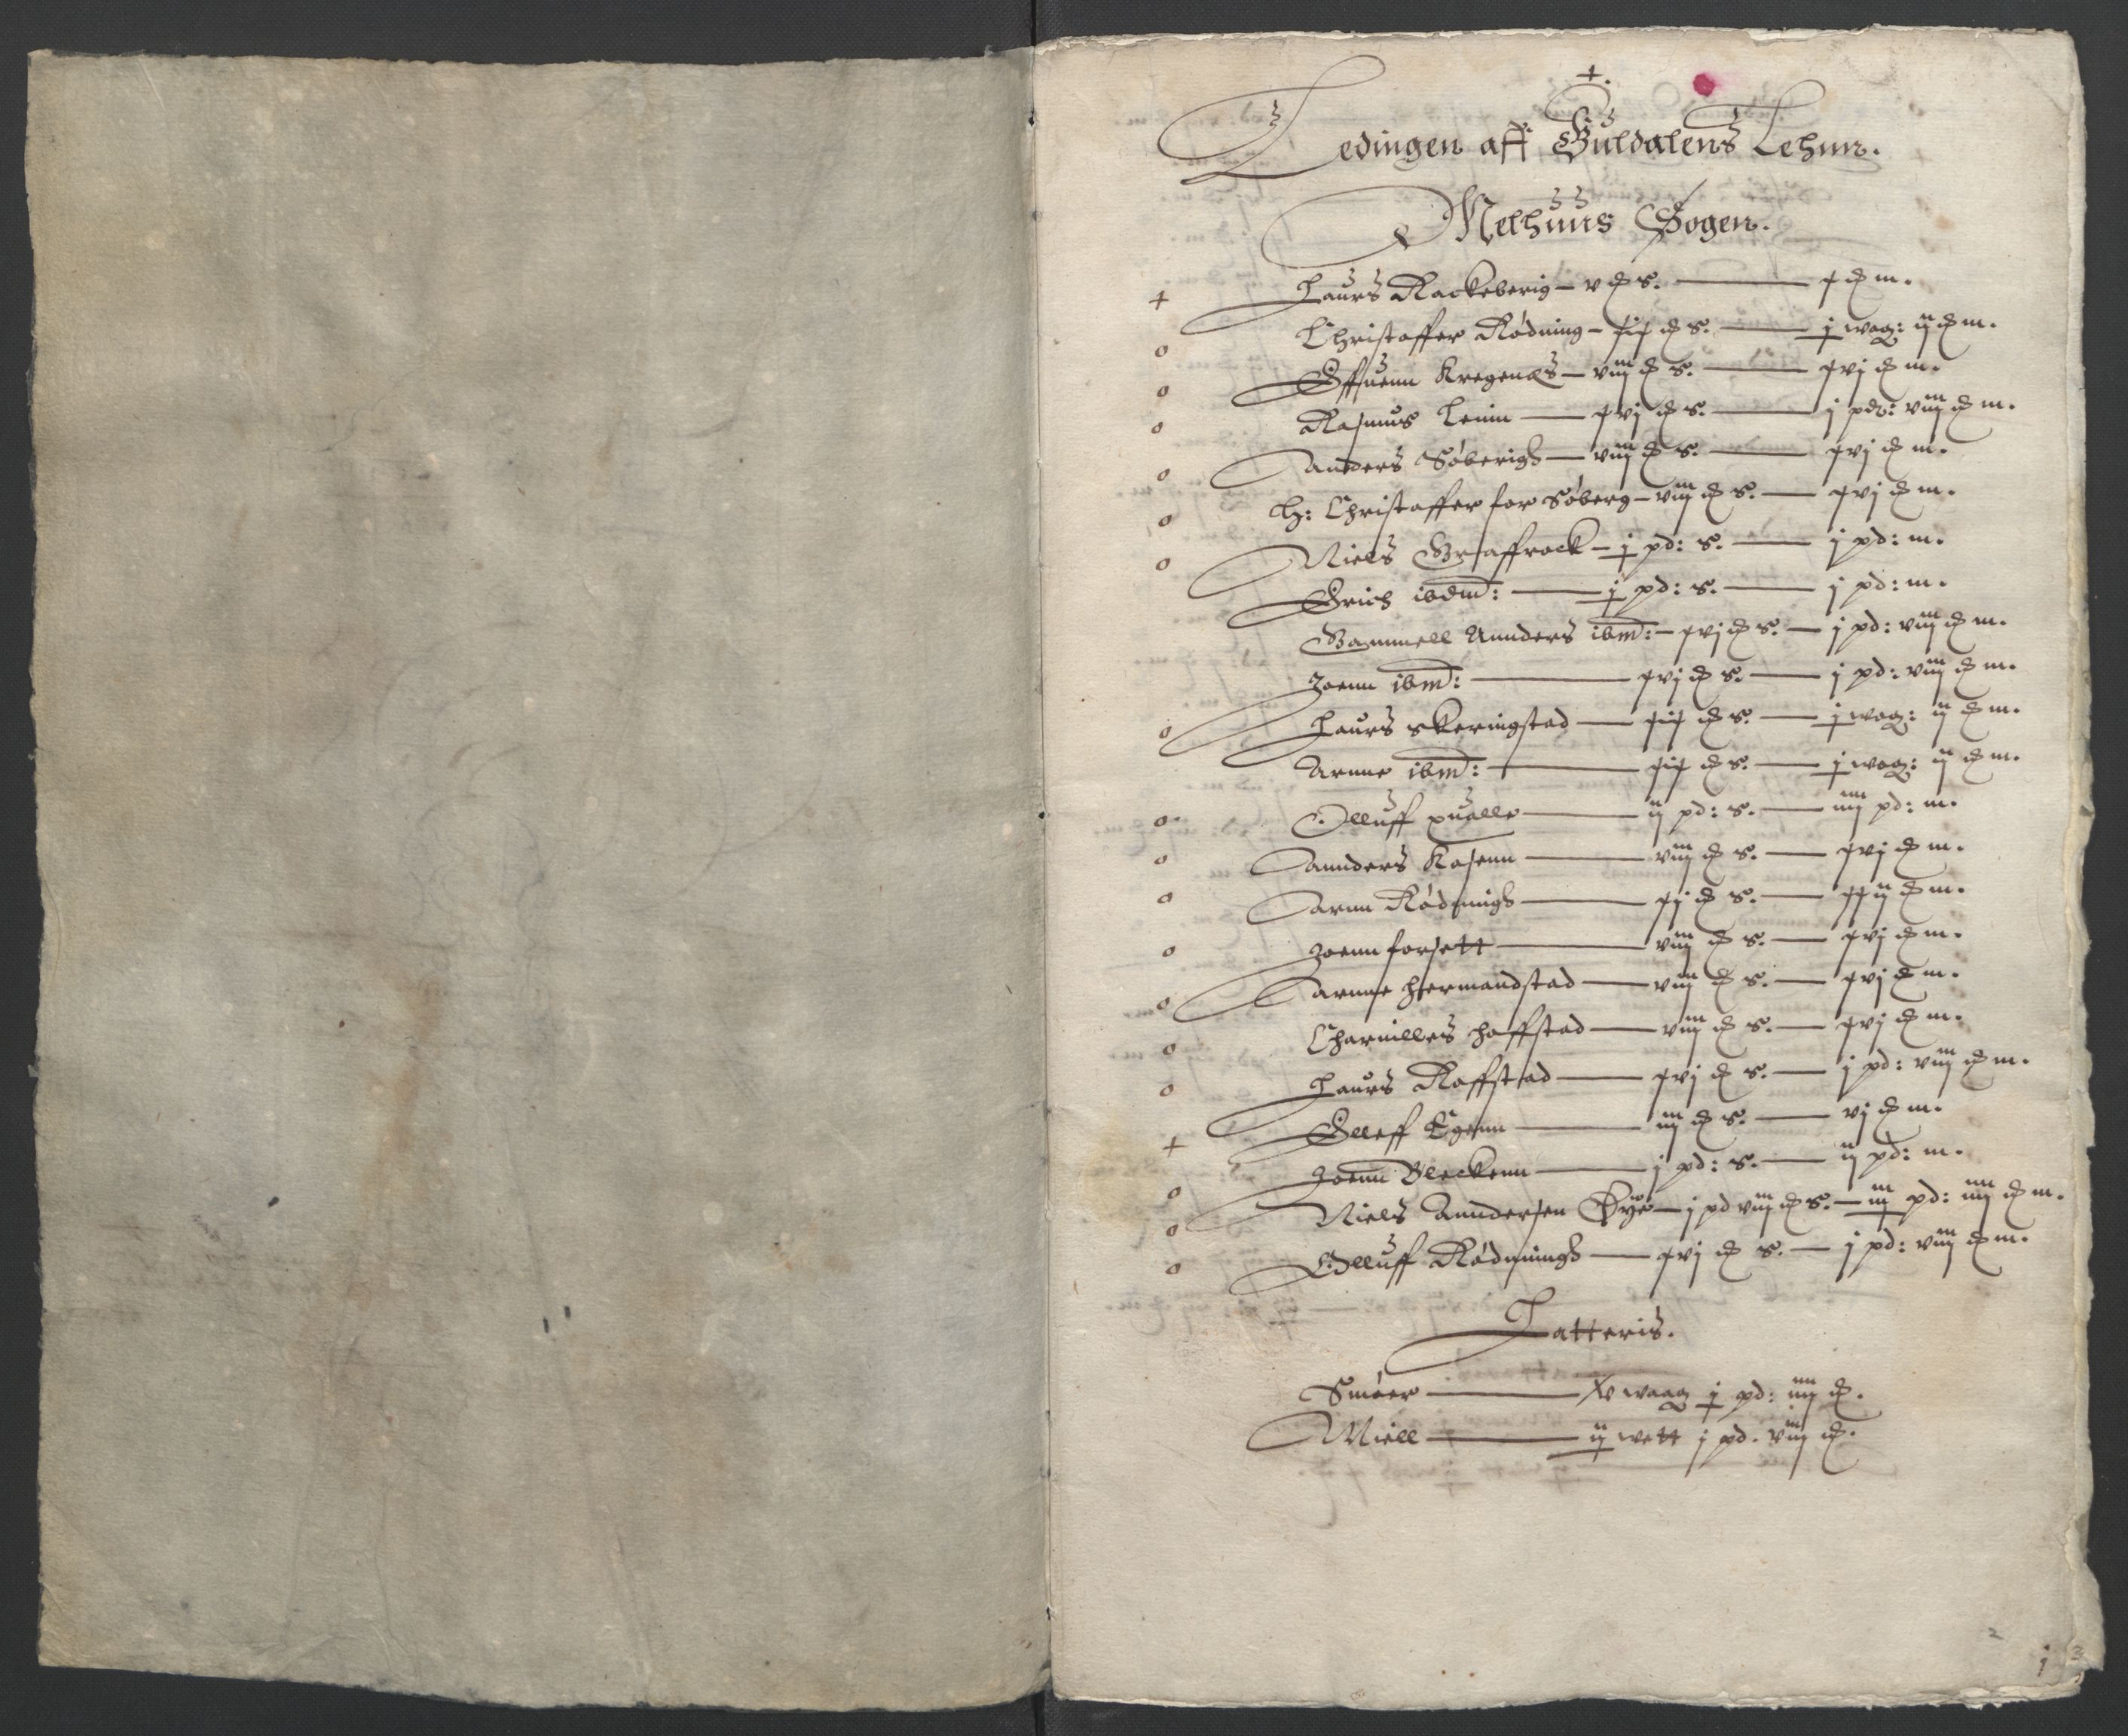 +.
Ledingen aff Guldalens Lehnn.
Melhuus Sogen.
+ Laurs Rackeberig – v ℔ s. — x ℔ m.
o Christoffer Rødning – xix ℔ s. — j wog: ij ℔ m.
o Effuenn Kregenæs – viij ℔ s. — xvj ℔ m.
o Rasmus Leinn — xvj ℔ s. — j pd: viij ℔ m.
o Anders Søberigh — viij ℔ s. — xvj ℔ m.
o H: Christoffer for Søberg – viij ℔ s. — xvj ℔ m.
o Niels Graffrock – j pd: s. — j pd: m.
Erich ibdm: — j pd: s. — j pd: m.
Gammell Annders ibm: – xvj ℔ s. — j pd: viij ℔ m.
Joenn ibm: — xvj ℔ s. — j pd: viij ℔ m.
o Laurs Skeringstad — xix ℔ s. — j wog: ij ℔ m.
Arnne ibm: — xix ℔ s. — j wog: ij ℔ m.
o Olluff qualle — ij pd: s. — iiij pd: m.
o Annders Kasenn — viij ℔ s. — xvj ℔ m.
o Arnn Rødningh — xj ℔ s. — xxij ℔ m.
o Joenn forsett — viij ℔ s. — xvj ℔ m.
o Arnne hermandstad — viij ℔ s. — xvj ℔ m.
o Charnilles hoffstad — viij ℔ s. — xvj ℔ m.
o Laurs Roffstad — xvj ℔ s. — j pd: viij ℔ m.
+ Elleff Egenn — iij ℔ s. — vj ℔ m.
o Joenn Bleckenn — j pd: s. — ij pd: m.
o Niels Anndersen Øye – j pd viij ℔ s. – iij pd: iiij ℔ m.
o Olluff Rødningh — xvj ℔ s. — j pd: viij ℔ m.
Latteris.
Smøer — xv waag j pd: iiij ℔.
Miell — ij wett j pd. viij ℔.
2
j
3